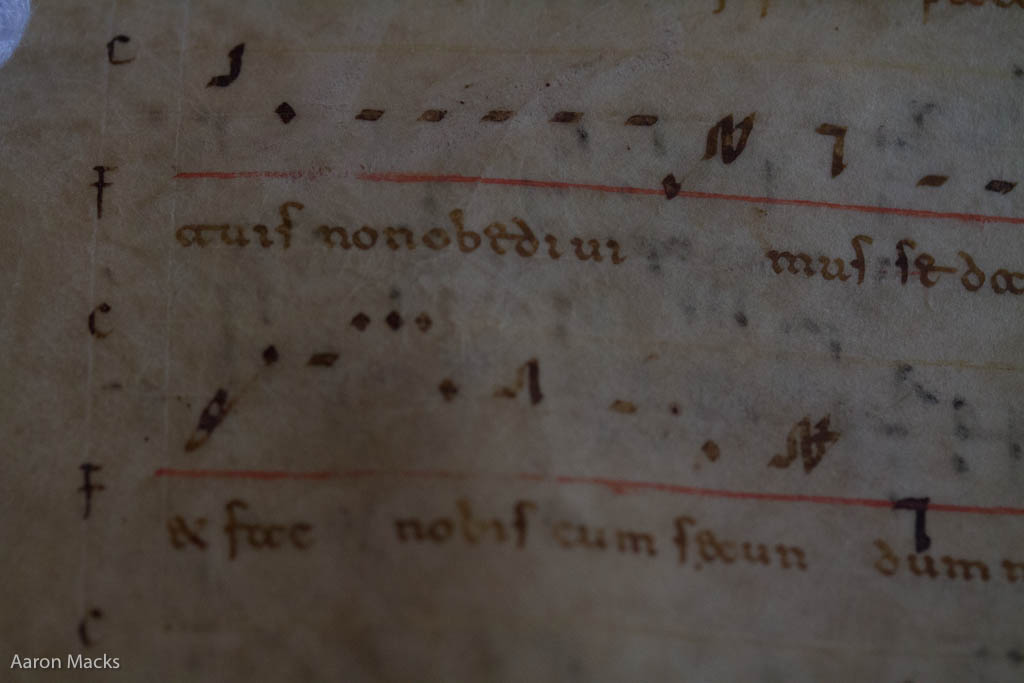 C
F
tuis non obedivi mus sed
C
F
& fac nobis cum secun dum
C
Aaron Macks